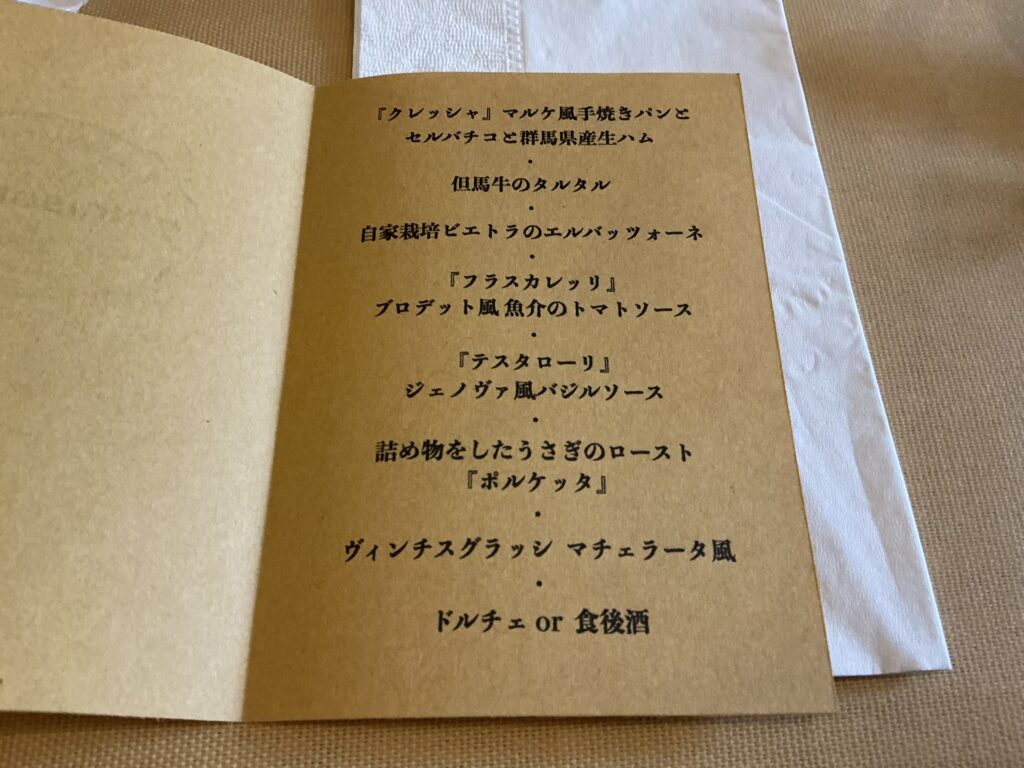 『クレッシャ』マルケ風手焼きパンと
セルバチコと群馬県産生ハム
・
但馬牛のタルタル
・
自家栽培ビエトラのエルバッツォーネ
・
『フラスカレッリ』
ブロデット風 魚介のトマトソース
・
『テスタローリ』
ジェノヴァ風バジルソース
・
詰め物をしたうさぎのロースト
『ポルケッタ』
・
ヴィンチスグラッシ マチェラータ風
・
ドルチェ or 食後酒